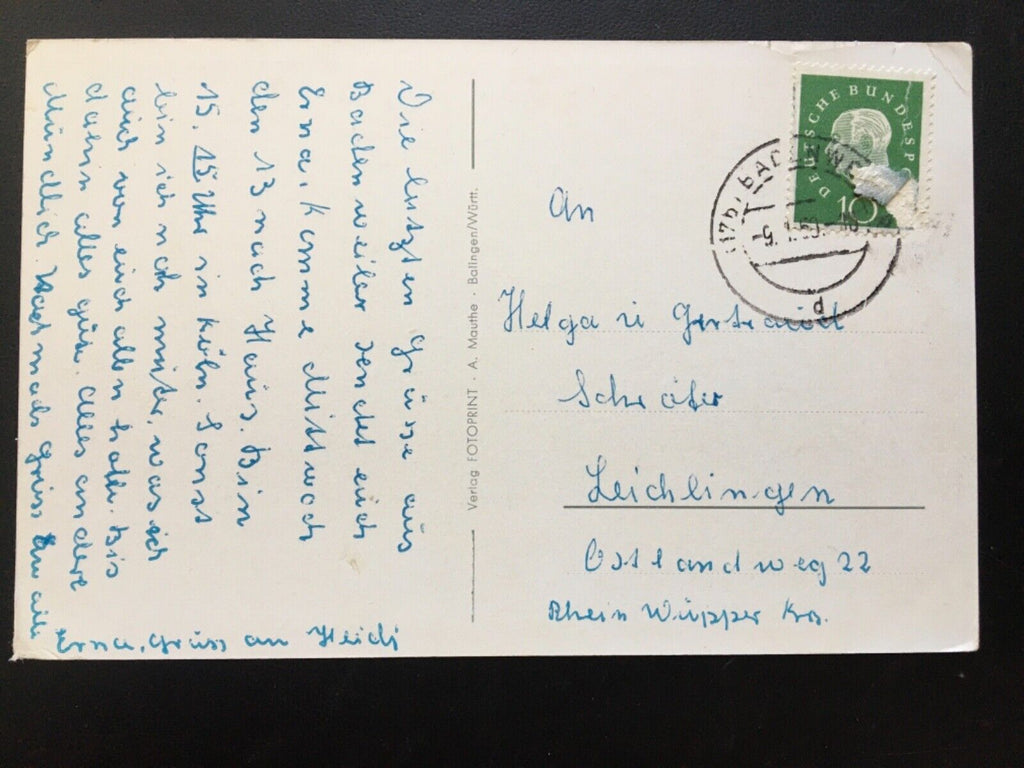 Die letzten Grüse aus
Badenweiler sendet euch
Erna. Komme Mittwoch
den 13 nach Haus. Bin
15.15 Uhr in Köln. Sonst
bin ich noch munter, was ich
auch von euch allen hoffe. Bis
dahin alles gute. Alles andere
Mündlich. Nochmals Gruss an alle
Erna, Gruss an Heidi
Verlag FOTOPRINT · A. Mauthe · Balingen/Württ.
DEUTSCHE BUNDESP
10
(17b) BADENWE
An
Helga u Gertraud
Schröter
Leichlingen
Ostlandweg 22
Rhein Wupper Krs.